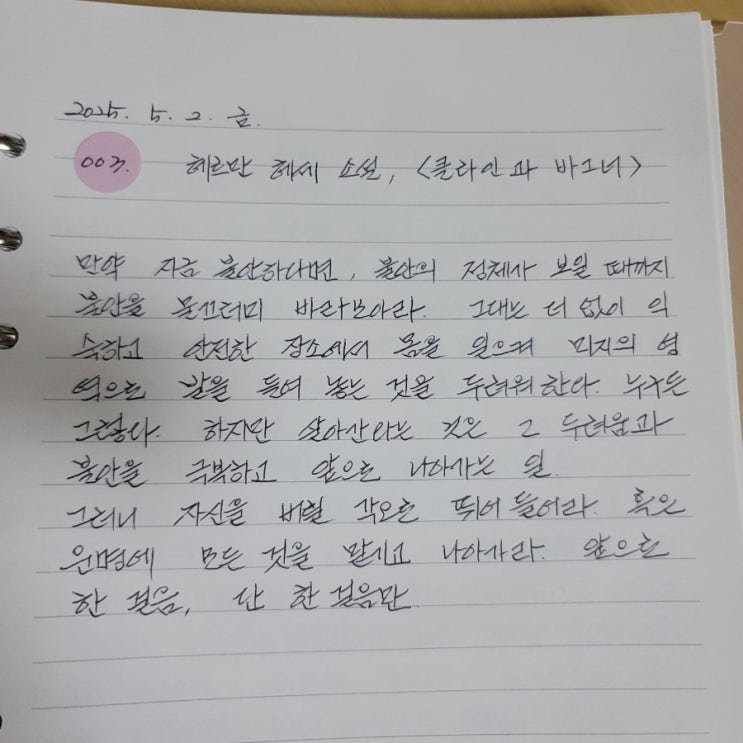 2025. 5. 2. 금.
003. 헤르만 헤세 소설, <클라인과 바그너>
만약 지금 불안하다면, 불안의 정체가 보일 때까지
불안을 물끄러미 바라보아라. 그대는 더 없이 익
숙하고 안전한 장소에서 몸을 일으켜 미지의 영
역으로 발을 들여 놓는 것을 두려워한다. 누구든
그렇다. 하지만 살아간다는 것은 그 두려움과
불안을 극복하고 앞으로 나아가는 일.
그러니 자신을 버릴 각오로 뛰어들어라. 혹은
운명에 모든 것을 맡기고 나아가라. 앞으로
한 걸음, 단 한 걸음만.